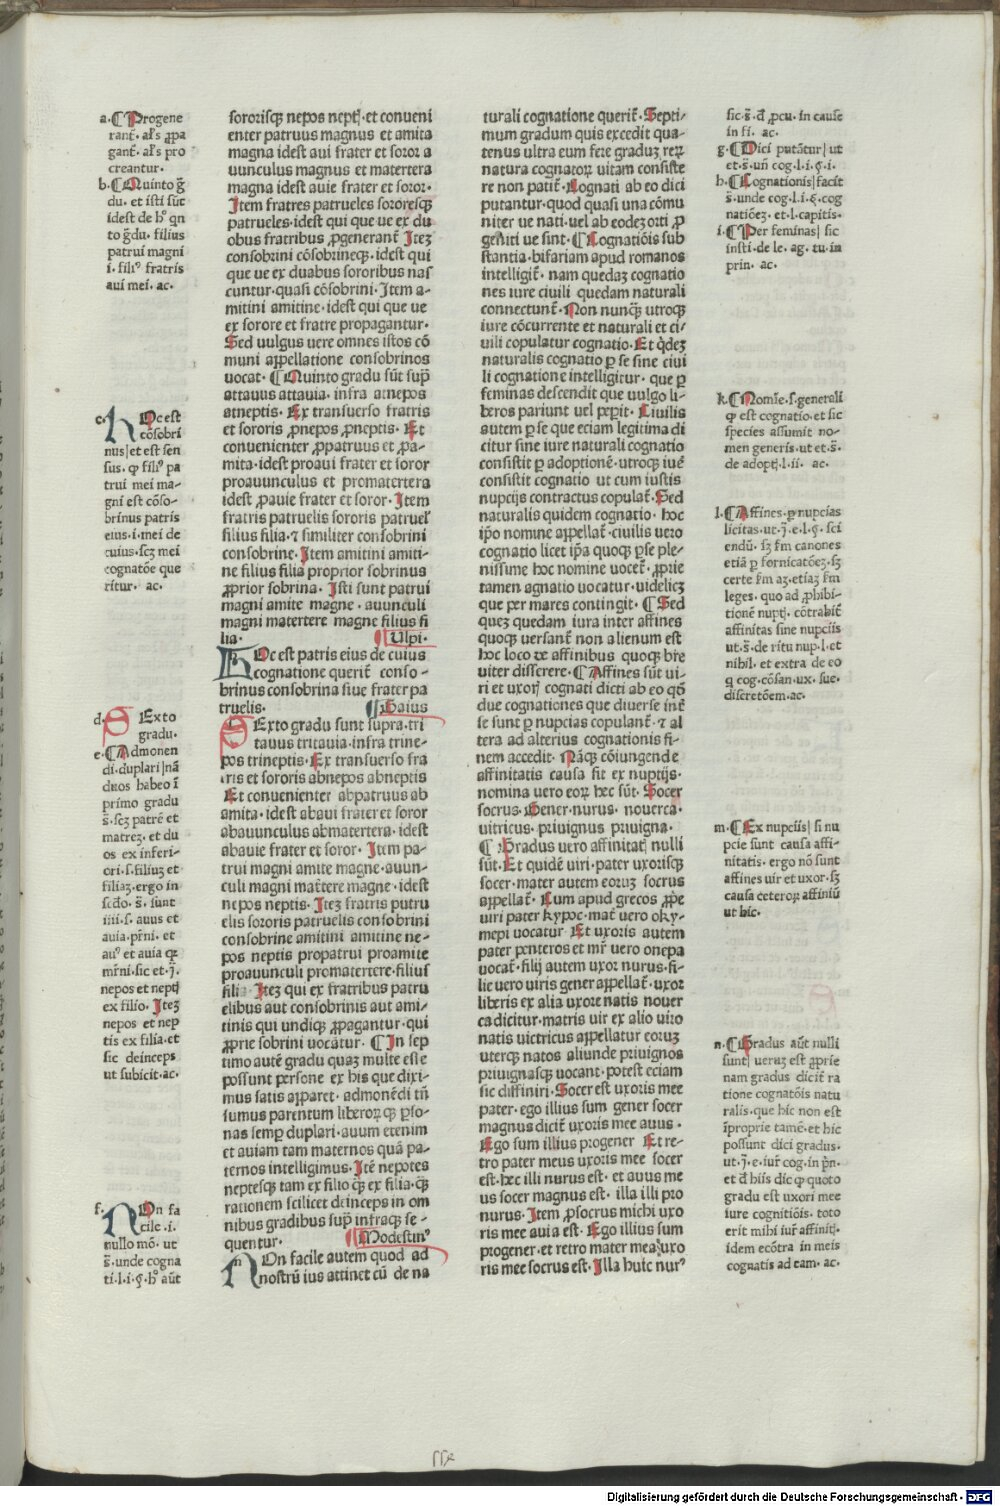 a. ¶ Progene
rant̄. al's ꝓpa
gant̄. al's pro
creantur.
b. ¶ Quinto g̃
du. et isti sūt
idest de hꝰ qn
to g̃du. filius
patrui magni
i. filiꝰ fratris
aui mei. ac.
c. hOc est
cōsobri
nus| et est sen
sus. ꝙ filiꝰ pa
trui mei ma-
gni est cōso-
brinus patris
eius. i. mei de
cuius. scꝫ mei
cognatōe que
ritur. ac.
d. SExto
gradu.
e. ¶ Admonen
di. duplari| nā
duos habeo ī
primo gradu
s̄. scꝫ patrē et
matreꝫ. et du
os ex inferi-
ori. s. filiuꝫ et
filiaꝫ. ergo in
scḋo. s̄. sunt
iiii. s. auus et
auia. pr̄ni. et
auꝰ et auia qꝛ
mr̄ni. sic et. j̄.
nepos et neptꝭ
ex filio. Iteꝫ
nepos et nep
tis ex filia. et
sic deinceps
ut subicit. ac.
f. NOn fa
cile. i.
nullo mō. ut
s̄. unde cogna
ti. l. i. §. hꝰ aūt
sororisqꝫ nepos neptꝭ. et conueni
enter patruus magnus et amita
magna idest aui frater et soror a
uunculus magnus et matertera
magna idest auie frater et soror.
Item fratres patrueles sororesqꝫ
patrueles. idest qui que ue ex du
obus fratribus ꝓgenerant̄ Iteꝫ
consobrini cōsobrineqꝫ. idest qui
que ue ex duabus sororibus nas
cuntur. quasi cōsobrini. Item a-
mitini amitine. idest qui que ue
ex sorore et fratre propagantur.
Sed uulgus uere omnes istos cō
muni appellatione consobrinos
uocat. ¶ Quinto gradu sūt sup̄
attauus attauia. infra atnepos
atneptis. Ex transuerso fratris
et sororis ꝓnepos ꝓneptis. Et
conuenienter ꝓpatruus et ꝓa-
mita. idest proaui frater et soror
proauunculus et promatertera
idest ꝓauie frater et soror. Item
fratris patruelis sororis patruel'
filius filia. ⁊ similiter consobrini
consobrine. Item amitini amiti-
ne filius filia proprior sobrinus
ꝓprior sobrina. Isti sunt patrui
magni amite magne. auunculi
magni matertere magne filius fi
lia. ¶ Ulpi.
HOc est patris eius de cuius
cognatione querit̄ conso-
brinus consobrina siue frater pa
truelis. ¶ Gaius
SExto gradu sunt supra. tri
tauus tritauia. infra trine-
pos trineptis. Ex transuerso fra
tris et sororis abnepos abneptis
Et conuenienter abpatruus ab
amita. idest abaui frater et soror
abauunculus abmatertera. idest
abauie frater et soror. Item pa-
trui magni amite magne. auun-
culi magni mat̄tere magne. idest
nepos neptis. Iteꝫ fratris putru
elis sororis patruelis consobrini
consobrine amitini amitine ne-
pos neptis propatrui proamite
proauunculi promatertere. filius
filia. Iteꝫ qui ex fratribus patru
elibus aut consobrinis aut ami-
tinis qui undiqꝫ ꝓpagantur. qui
ꝓprie sobrini uocātur. ¶ In sep
timo autē gradu quaꝫ multe esse
possunt persone ex his que dixi-
mus satis apparet. admonēdi tn̄
sumus parentum liberoꝝqꝫ ꝑso-
nas semꝑ duplari. auum etenim
et auiam tam maternos quā pa-
ternos intelligimus. Itē nepotes
neptesqꝫ tam ex filio qꝫ ex filia. qꝫ
rationem scilicet deinceps in om
nibus gradibus sup̄ infraqꝫ se-
quentur. ¶ Modestinꝰ
NOn facile autem quod ad
nostrū ius attinet cū de na
turali cognatione querit̄. Septi-
mum gradum quis excedit qua-
tenus ultra eum fere graduꝫ reꝝ
natura cognatoꝝ uitam consiste
re non patit̄. Cognati ab eo dici
putantur. quod quasi una cōmu
niter ue nati. uel ab eodeꝫ orti ꝓ
geniti ue sint. ¶ Cognatiōis sub
stantia. bifariam apud romanos
intelligit̄. nam quedaꝫ cognatio
nes iure ciuili quedam naturali
connectunt̄. Non nunqꝫ utroqꝫ
iure cōcurrente et naturali et ci-
uili copulatur cognatio. Et q̇deꝫ
naturalis cognatio ꝑ se sine ciui
li cognatione intelligitur. que ꝑ
feminas descendit que uulgo li-
beros pariunt uel peꝑit. Ciuilis
autem ꝑ se que eciam legitima di
citur sine iure naturali cognatio
consistit ꝑ adoptionē. utroqꝫ iuē
consistit cognatio ut cum iustis
nupcijs contractus copulat̄. Sed
naturalis quidem cognatio. hoc
ip̄o nomine appellat̄. ciuilis uero
cognatio licet ip̄a quoqꝫ ꝑ se ple-
nissime hoc nomine uocet̄. ꝓprie
tamen agnatio uocatur. uidelicꝫ
que per mares contingit. ¶ Sed
queꝫ quedam iura inter affines
quoqꝫ uersant̄ non alienum est
hoc loco de affinibus quoqꝫ br̄e
uiter disserere. ¶ Affines sūt ui-
ri et uxorꝭ cognati dicti ab eo qō
due cognationes que diuerse int̄
se sunt ꝑ nupcias copulant̄. ⁊ al
tera ad alterius cognationis fi-
nem accedit. Nāqꝫ cōiungende
affinitatis causa fit ex nuptijs.
nomina uero eoꝝ hec sūt. Socer
socrus. Gener. nurus. nouerca.
uitricus. priuignus priuigna.
¶ Gradus uero affinitatꝭ nulli
sūt. Et quidē uiri. pater uxorisqꝫ
socer. mater autem eoruꝫ socrus
appellat̄. Cum apud grecos ꝓpe
uiri pater kypoc. mat̄ uero oky-
mepi uocatur Et uxoris autem
pater penteros et mr̄ uero onepa
uocat̄. filij autem uxor nurus. fi-
lie uero uiris gener appellat̄. uxor
liberis ex alia uxore natis nouer
ca dicitur. matris uir ex alio uiro
natis uictricus appellatur eoruꝫ
uterqꝫ natos aliunde priuignos
priuignasqꝫ uocant. potest eciam
sic diffiniri. Socer est uxoris mee
pater. ego illius sum gener socer
magnus dicit̄ uxoris mee auus.
Ego sum illius progener Et re-
tro pater meus uxoris mee socer
est. hec illi nurus est. et auus me
us socer magnus est. illa illi pro
nurus. Item ꝓsocrus michi uxo
ris mee auia est. Ego illius sum
progener. et retro mater mea uxo
ris mee socrus est. Illa huic nurꝰ
sic. s̄. ḋ ꝓcu. in cause
in fi. ac.
g. ¶ Dici putātur| ut
et. s̄. un̄ cog. l. i. §. i.
h. ¶ Cognationis| facit
s̄. unde cog. l. i. §. cog
natiōeꝫ. et. l. capitis.
i. ¶ Per feminas| sic
insti. de le. ag. tu. in
prin. ac.
k. ¶ Nomīe. s. generali
ꝙ est cognatio. et sic
species assumit no-
men generis. ut et. s̄.
de adoptꝭ. l. ii. ac.
l. ¶ Affines. ꝑ nupcias
licitas. ut. j̄. e. l. §. sci
endū. sꝫ f̄m canones
etiā ꝑ fornicatōeꝫ. sꝫ
certe f̄m aꝫ. etiaꝫ f̄m
leges. quo ad ꝓhibi-
tionē nuptꝭ. cōtrahit̄
affinitas sine nupciis
ut. s̄. de ritu nup. l. et
nihil. et extra de eo
q̄ cog. cōsan. ux. sue.
discretōem. ac.
m. ¶ Ex nupciis| si nu
pcie sunt causa affi-
nitatis. ergo nō sunt
affines uir et uxor. sꝫ
causa ceteroꝝ affiniū
ut hic.
n. ¶ Gradus aūt nulli
sunt| ueruꝫ est ꝓprie
nam gradus dicit̄ ra
tione cognatōis natu
ralis. que hic non est
īproprie tamē. et hic
possunt dici gradus.
ut. j̄. e. iur̄ cog. in pn̄.
et ḋ hiis dic ꝙ quoto
gradu est uxori mee
iure cognitiōis. toto
erit mihi iur̄ affinitꝭ.
idem ecōtra in meis
cognatis ad eam. ac.
Digitalisierung gefördert durch die Deutsche Forschungsgemeinschaft - DFG